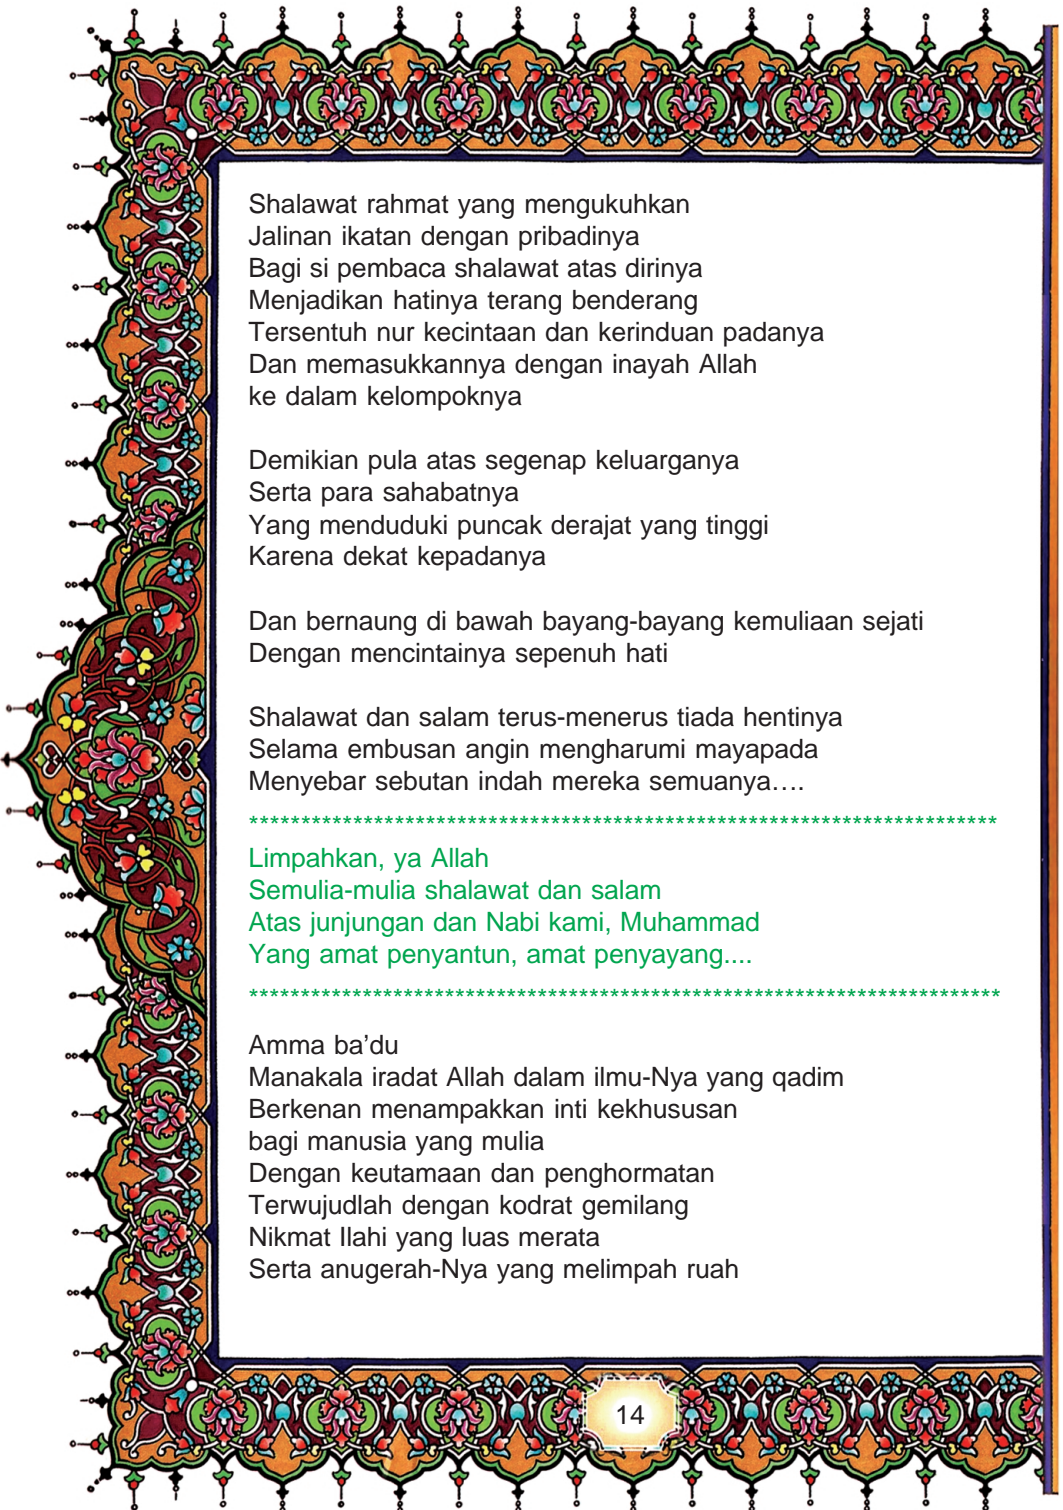 Shalawat rahmat yang mengukuhkan
Jalinan ikatan dengan pribadinya
Bagi si pembaca shalawat atas dirinya
Menjadikan hatinya terang benderang
Tersentuh nur kecintaan dan kerinduan padanya
Dan memasukkannya dengan inayah Allah
ke dalam kelompoknya

Demikian pula atas segenap keluarganya
Serta para sahabatnya
Yang menduduki puncak derajat yang tinggi
Karena dekat kepadanya

Dan bernaung di bawah bayang-bayang kemuliaan sejati
Dengan mencintainya sepenuh hati

Shalawat dan salam terus-menerus tiada hentinya
Selama embusan angin mengharumi mayapada
Menyebar sebutan indah mereka semuanya….
************************************************************************
Limpahkan, ya Allah
Semulia-mulia shalawat dan salam
Atas junjungan dan Nabi kami, Muhammad
Yang amat penyantun, amat penyayang....
************************************************************************

Amma ba’du
Manakala iradat Allah dalam ilmu-Nya yang qadim
Berkenan menampakkan inti kekhususan
bagi manusia yang mulia
Dengan keutamaan dan penghormatan
Terwujudlah dengan kodrat gemilang
Nikmat Ilahi yang luas merata
Serta anugerah-Nya yang melimpah ruah

14